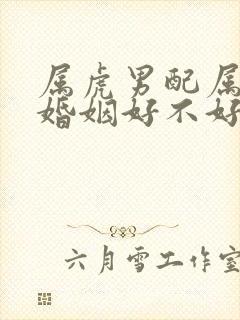 属虎男配属
婚姻好不好
六月雪工作室